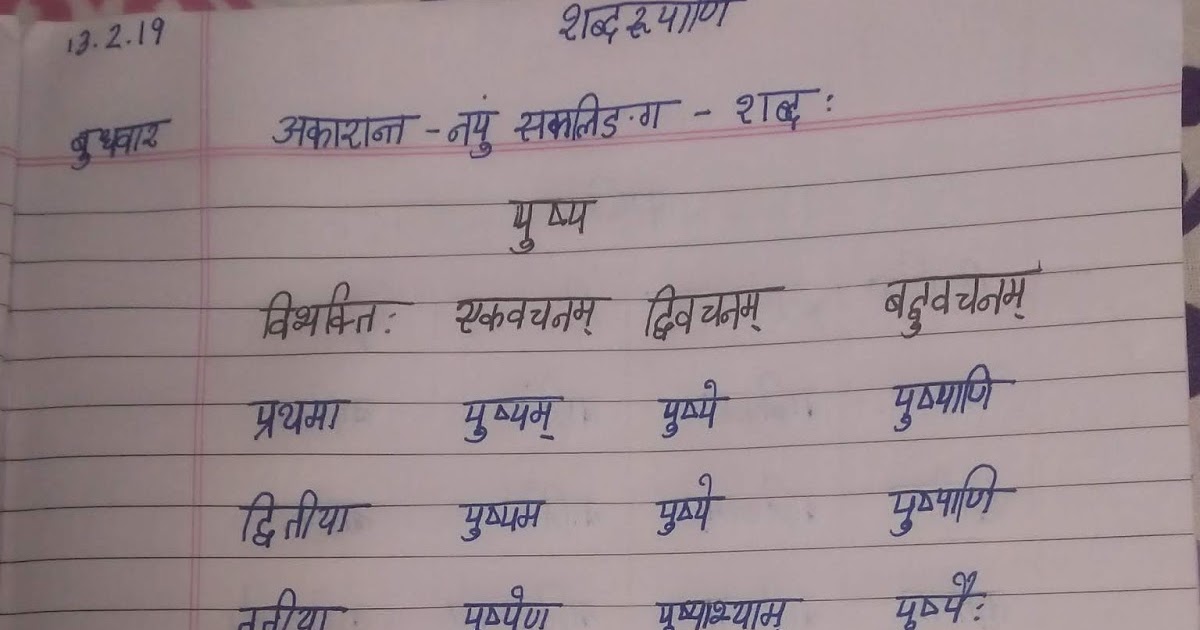 13.2.19 शब्दरूपाणि
बुधवार अकारान्त - नपुं सकलिङ्ग - शब्द :
पुष्प
विभक्ति : एकवचनम् द्विवचनम् बहुवचनम्
प्रथमा पुष्पम् पुष्पे पुष्पाणि
द्वितीया पुष्पम पुष्पे पुष्पाणि
तृतीया पुष्पेण पुष्पाभ्याम् पुष्पैः